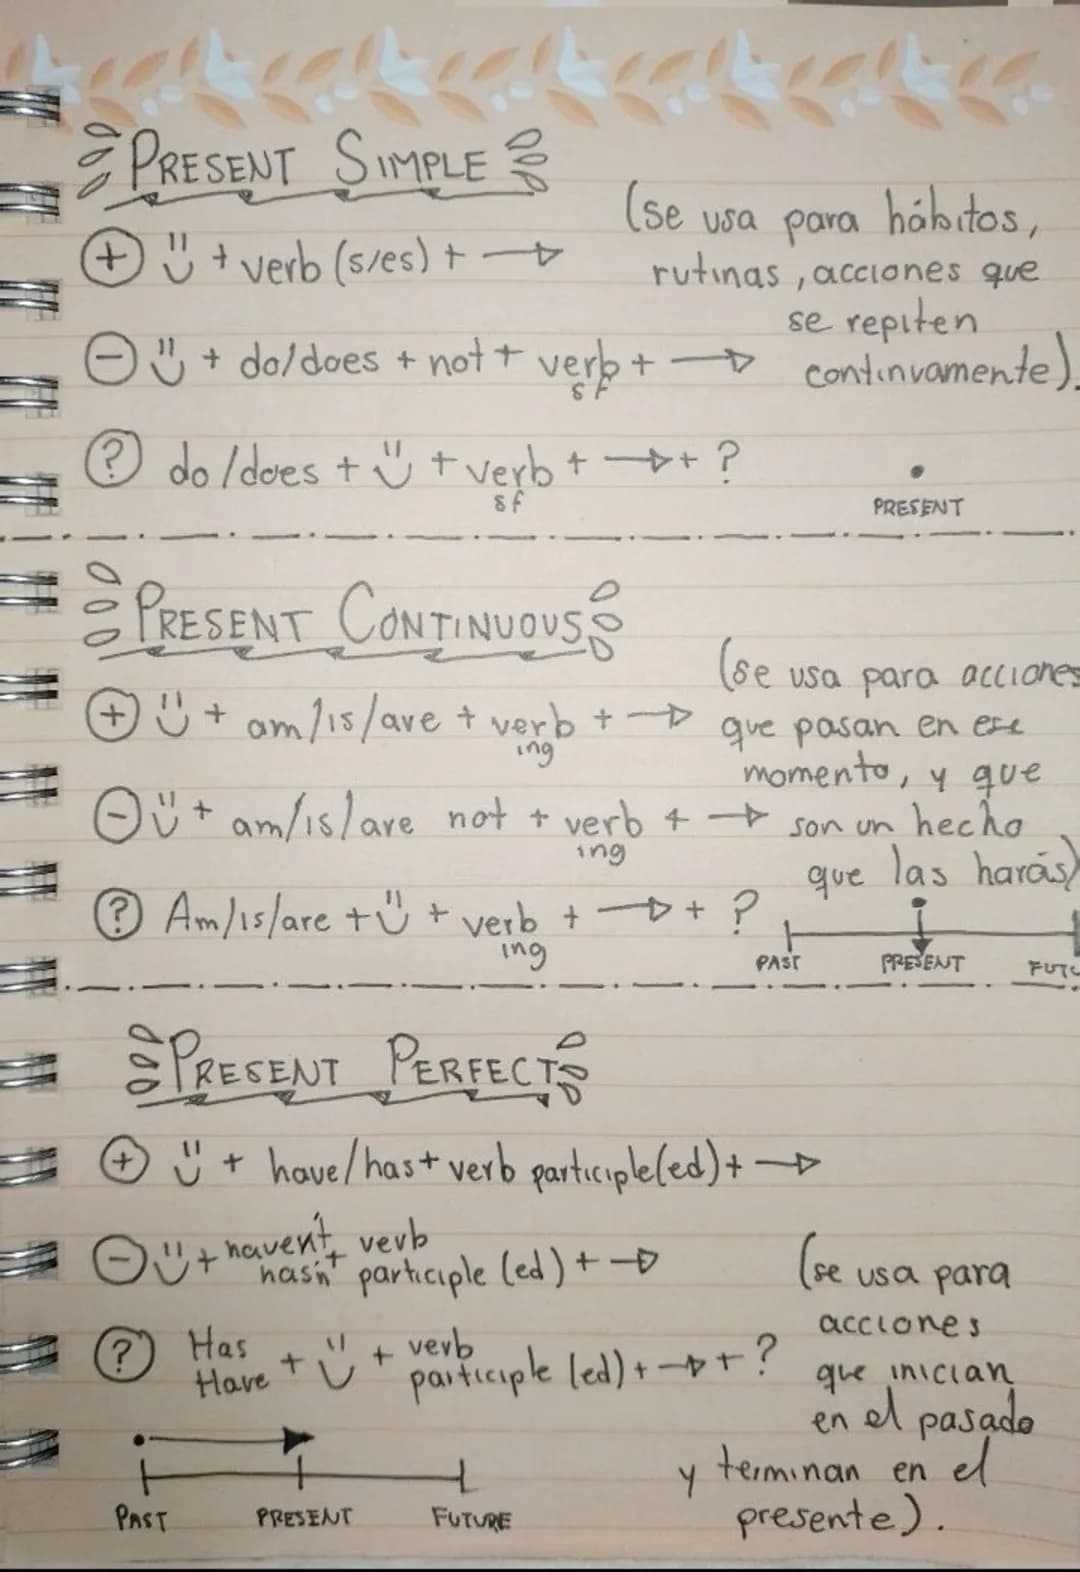 PRESENT SIMPLE
(se usa para hábitos,
+ + verb (s/es) +
rutinas, acciones que
se repiten
- + do/does + not + verb +
sf
continuamente).
? do/does + + verb + + ?
sf
PRESENT
PRESENT CONTINUOUS
(se usa para acciones
+ + am/is/are + verb +
ing
que pasan en ese
momento, y que
- + am/is/are not + verb +
ing
son un hecho
que las harás)
? Am/is/are + + verb + + ?
ing
PAST PRESENT FUTU
PRESENT PERFECT
+ + have/has + verb participle(ed) +
- + haven't + verb
hasn't participle (ed) +
(se usa para
acciones
? Has + + verb
Have participle (ed) + + ?
que inician
en el pasado
y terminan en el
presente).
PAST PRESENT FUTURE